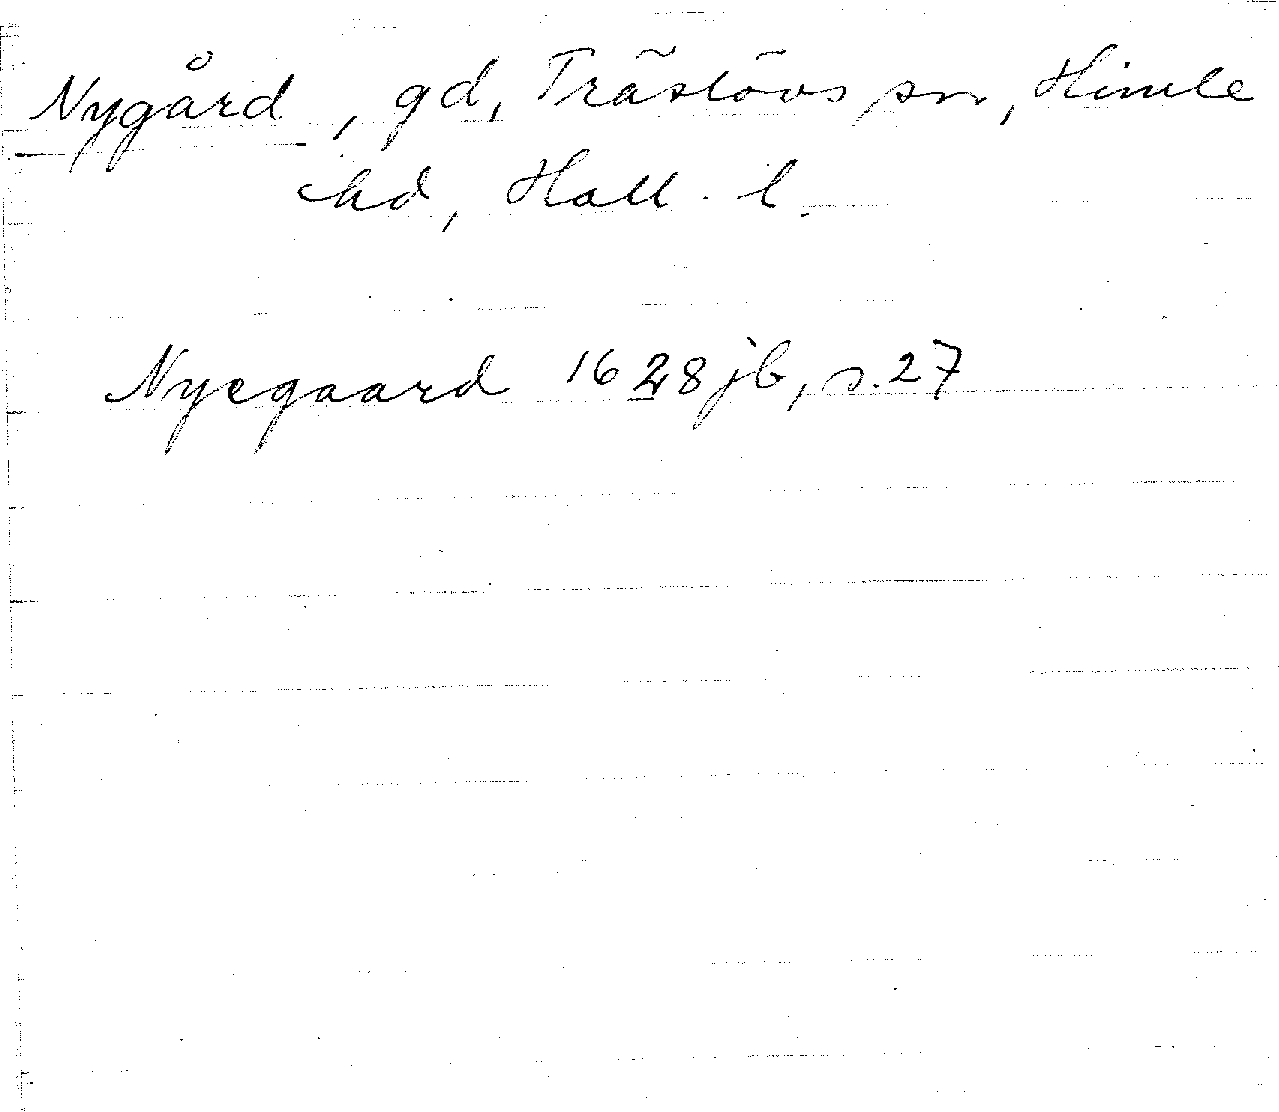 Nygård, gd, Träslövs sn, Himle
hd, Hall. l.
Nyegaard 1628 jb, s. 27